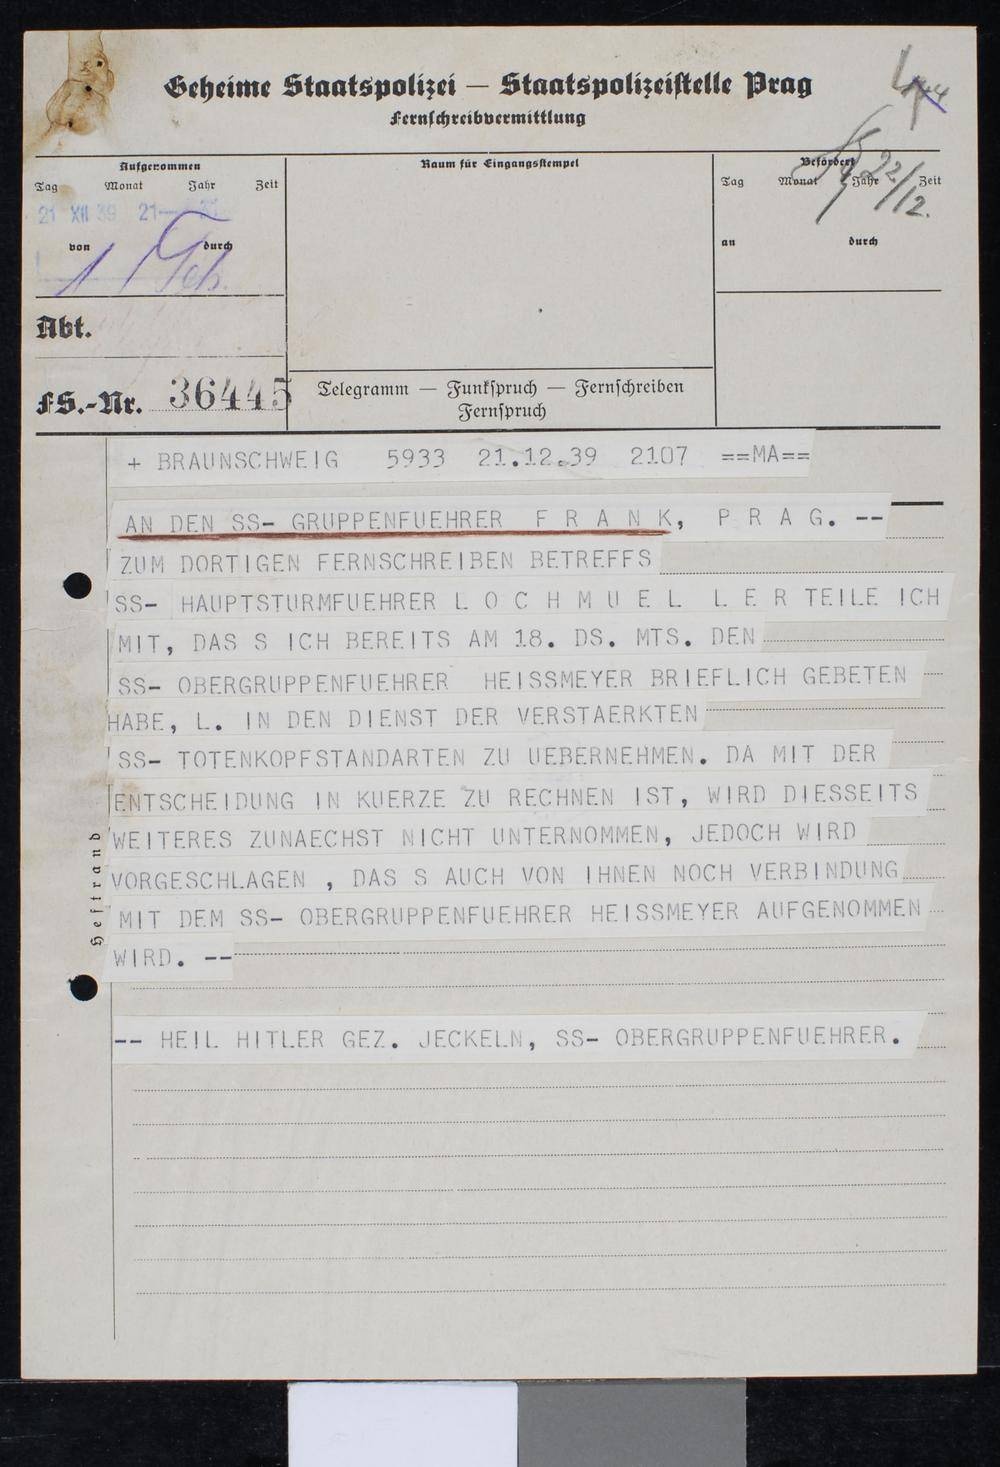 Geheime Staatspolizei — Staatspolizeistelle Prag
Fernschreibvermittlung
Aufgenommen
Tag Monat Jahr Zeit
21 XII 39 21
von durch
Raum für Eingangsstempel
Befördert
Tag Monat Jahr Zeit
22/12.
an durch
Abt.
FS.-Nr. 36445
Telegramm — Funkspruch — Fernschreiben
Fernspruch
+ BRAUNSCHWEIG 5933 21.12.39 2107 ==MA==
AN DEN SS- GRUPPENFUEHRER F R A N K, P R A G. --
ZUM DORTIGEN FERNSCHREIBEN BETREFFS
SS- HAUPTSTURMFUEHRER L O C H M U E L L E R TEILE ICH
MIT, DAS S ICH BEREITS AM 18. DS. MTS. DEN
SS- OBERGRUPPENFUEHRER HEISSMEYER BRIEFLICH GEBETEN
HABE, L. IN DEN DIENST DER VERSTAERKTEN
SS- TOTENKOPFSTANDARTEN ZU UEBERNEHMEN. DA MIT DER
ENTSCHEIDUNG IN KUERZE ZU RECHNEN IST, WIRD DIESSEITS
WEITERES ZUNAECHST NICHT UNTERNOMMEN, JEDOCH WIRD
VORGESCHLAGEN , DAS S AUCH VON IHNEN NOCH VERBINDUNG
MIT DEM SS- OBERGRUPPENFUEHRER HEISSMEYER AUFGENOMMEN
WIRD. --
-- HEIL HITLER GEZ. JECKELN, SS- OBERGRUPPENFUEHRER.
Heftrand